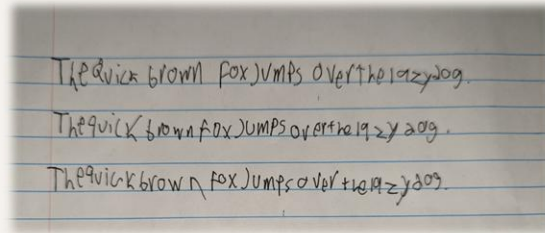 The Quick brown fox Jumps over the lazy dog.
The quick brown fox Jumps over the lazy dog.
The quick brown fox Jumps over the lazy dog.